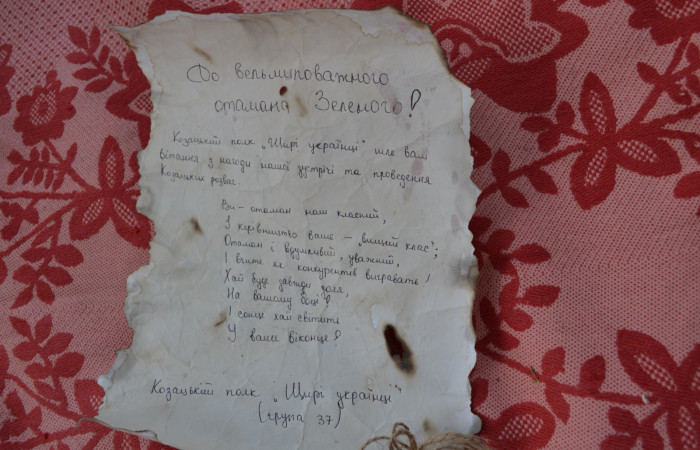 До вельмиповажного
отамана Зеленого!
Козацький полк „Щирі українці" шле вам
вітання з нагоди нашої зустрічі та проведення
Козацьких розваг.
Ви – отаман наш класний,
І керівництво ваше – „вищий клас";
Отаман і вдумливий, уважний,
І вчить як конкурентів вигравать!
Хай буде завжди доля,
На вашому боці!
І сонце хай світить
У ваше віконце!
Козацькій полк „Щирі українці"
(група 37)